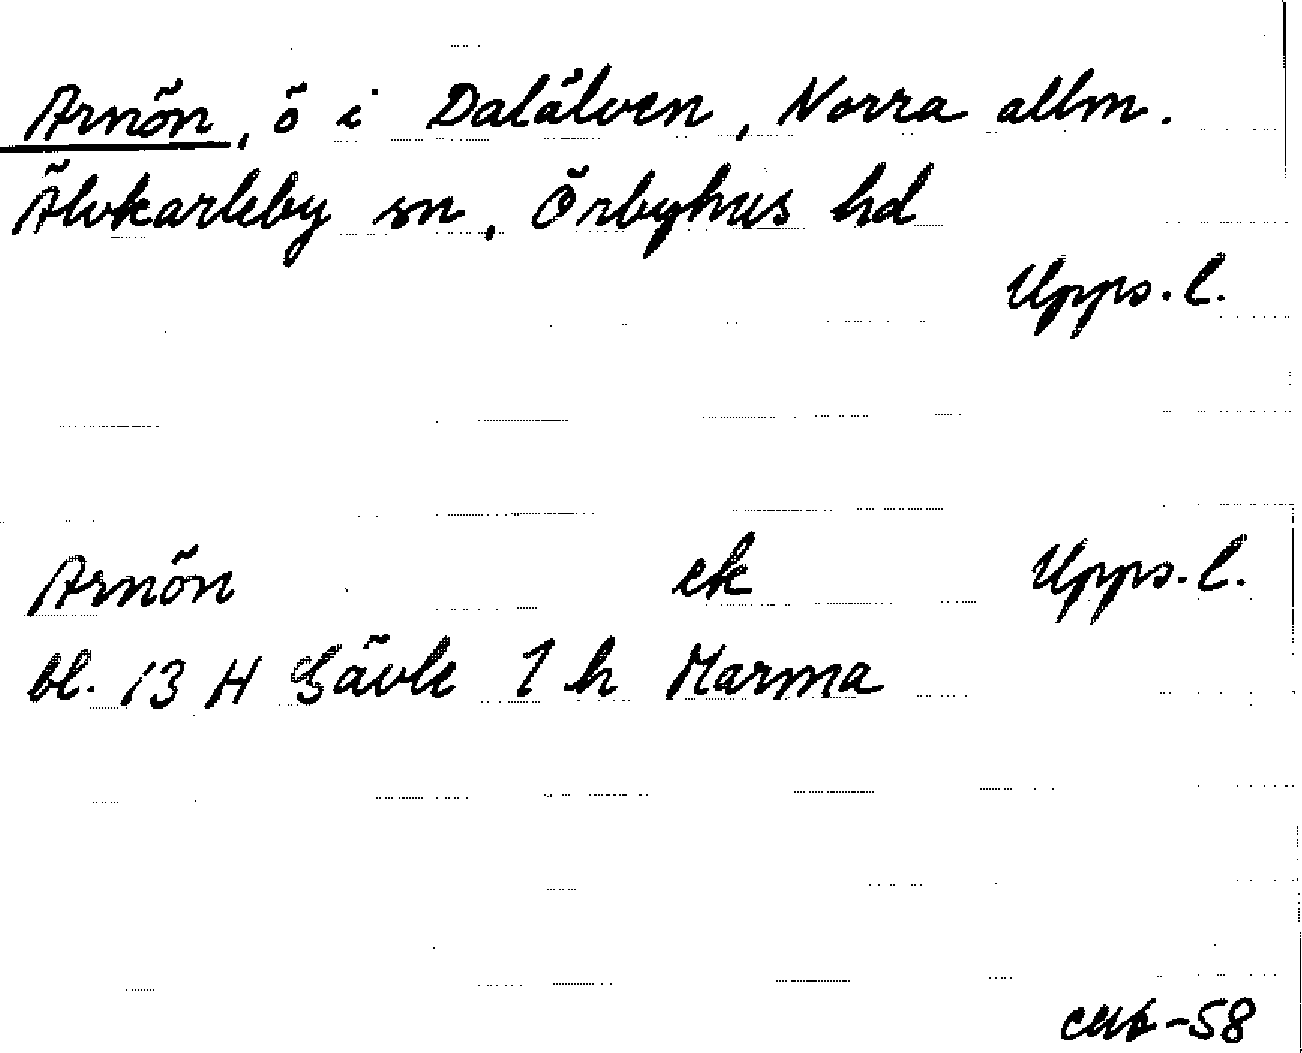 Arnön, ö i Dalälven, Norra allm.
Älvkarleby sn, Örbyhus hd
Upps. l.
Arnön ek Upps. l.
bl. 13 H Gävle 1 h Marma
-58